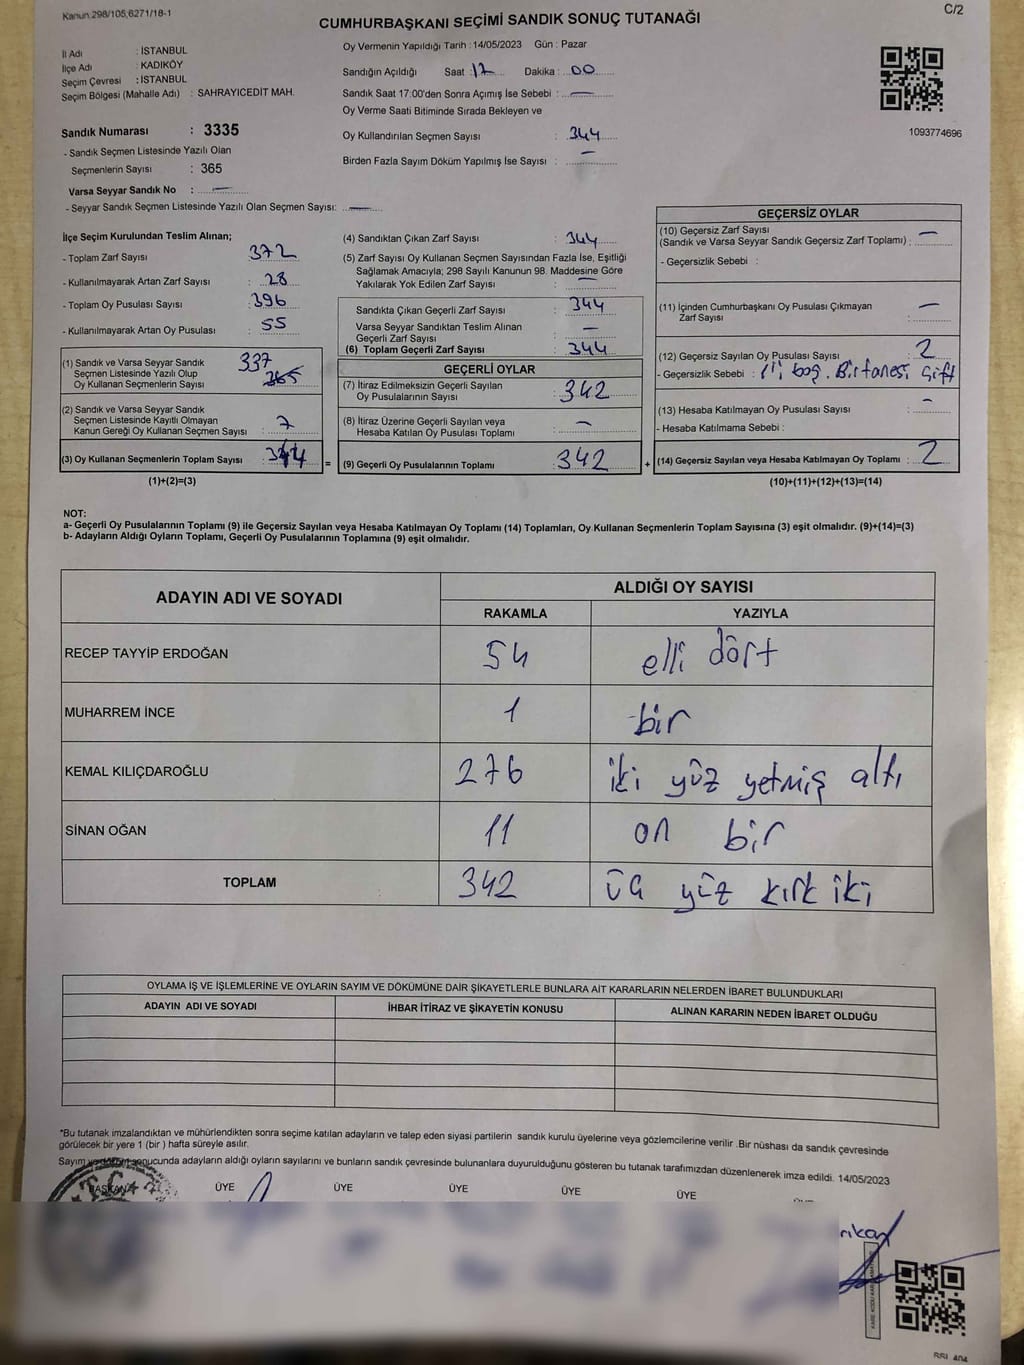 Kanun.298/105,6271/18-1
C/2
CUMHURBAŞKANI SEÇİMİ SANDIK SONUÇ TUTANAĞI
İl Adı : İSTANBUL
İlçe Adı : KADIKÖY
Seçim Çevresi : İSTANBUL
Seçim Bölgesi (Mahalle Adı) : SAHRAYICEDİT MAH.
Sandık Numarası : 3335
- Sandık Seçmen Listesinde Yazılı Olan
Seçmenlerin Sayısı : 365
Varsa Seyyar Sandık No : —
- Seyyar Sandık Seçmen Listesinde Yazılı Olan Seçmen Sayısı: —
Oy Vermenin Yapıldığı Tarih : 14/05/2023 Gün : Pazar
Sandığın Açıldığı Saat : 17 Dakika : 00
Sandık Saat 17:00'den Sonra Açımış İse Sebebi : —
Oy Verme Saati Bitiminde Sırada Bekleyen ve
Oy Kullandırılan Seçmen Sayısı : 344
Birden Fazla Sayım Döküm Yapılmış İse Sayısı : —
1093774696
İlçe Seçim Kurulundan Teslim Alınan;
- Toplam Zarf Sayısı : 372
- Kullanılmayarak Artan Zarf Sayısı : 28
- Toplam Oy Pusulası Sayısı : 396
- Kullanılmayarak Artan Oy Pusulası : 55
(1) Sandık ve Varsa Seyyar Sandık
Seçmen Listesinde Yazılı Olup
Oy Kullanan Seçmenlerin Sayısı : 337 365
(2) Sandık ve Varsa Seyyar Sandık
Seçmen Listesinde Kayıtlı Olmayan
Kanun Gereği Oy Kullanan Seçmen Sayısı : 7
(3) Oy Kullanan Seçmenlerin Toplam Sayısı : 344 =
(1)+(2)=(3)
(4) Sandıktan Çıkan Zarf Sayısı : 344
(5) Zarf Sayısı Oy Kullanan Seçmen Sayısından Fazla İse, Eşitliği
Sağlamak Amacıyla; 298 Sayılı Kanunun 98. Maddesine Göre
Yakılarak Yok Edilen Zarf Sayısı : —
Sandıkta Çıkan Geçerli Zarf Sayısı : 344
Varsa Seyyar Sandıktan Teslim Alınan
Geçerli Zarf Sayısı : —
(6) Toplam Geçerli Zarf Sayısı : 344
GEÇERLİ OYLAR
(7) İtiraz Edilmeksizin Geçerli Sayılan
Oy Pusulalarının Sayısı : 342
(8) İtiraz Üzerine Geçerli Sayılan veya
Hesaba Katılan Oy Pusulası Toplamı : —
(9) Geçerli Oy Pusulalarının Toplamı : 342 +
GEÇERSİZ OYLAR
(10) Geçersiz Zarf Sayısı
(Sandık ve Varsa Seyyar Sandık Geçersiz Zarf Toplamı) : —
- Geçersizlik Sebebi :
(11) İçinden Cumhurbaşkanı Oy Pusulası Çıkmayan
Zarf Sayısı : —
(12) Geçersiz Sayılan Oy Pusulası Sayısı : 2
- Geçersizlik Sebebi : 1'i boş. Birtanesi çift
(13) Hesaba Katılmayan Oy Pusulası Sayısı : -
- Hesaba Katılmama Sebebi :
(14) Geçersiz Sayılan veya Hesaba Katılmayan Oy Toplamı : 2
(10)+(11)+(12)+(13)=(14)
NOT:
a- Geçerli Oy Pusulalarının Toplamı (9) ile Geçersiz Sayılan veya Hesaba Katılmayan Oy Toplamı (14) Toplamları, Oy Kullanan Seçmenlerin Toplam Sayısına (3) eşit olmalıdır. (9)+(14)=(3)
b- Adayların Aldığı Oyların Toplamı, Geçerli Oy Pusulalarının Toplamına (9) eşit olmalıdır.
ADAYIN ADI VE SOYADI
ALDIĞI OY SAYISI
RAKAMLA YAZIYLA
RECEP TAYYİP ERDOĞAN 54 elli dört
MUHARREM İNCE 1 bir
KEMAL KILIÇDAROĞLU 276 iki yüz yetmiş altı
SİNAN OĞAN 11 on bir
TOPLAM 342 üç yüz kırk iki
OYLAMA İŞ VE İŞLEMLERİNE VE OYLARIN SAYIM VE DÖKÜMÜNE DAİR ŞİKAYETLERLE BUNLARA AİT KARARLARIN NELERDEN İBARET BULUNDUKLARI
ADAYIN ADI VE SOYADI İHBAR İTİRAZ VE ŞİKAYETİN KONUSU ALINAN KARARIN NEDEN İBARET OLDUĞU
*Bu tutanak imzalandıktan ve mühürlendikten sonra seçime katılan adayların ve talep eden siyasi partilerin sandık kurulu üyelerine veya gözlemcilerine verilir .Bir nüshası da sandık çevresinde
görülecek bir yere 1 (bir ) hafta süreyle asılır.
Sayım ve döküm sonucunda adayların aldığı oyların sayılarını ve bunların sandık çevresinde bulunanlara duyurulduğunu gösteren bu tutanak tarafımızdan düzenlenerek imza edildi. 14/05/2023
BAŞKAN ÜYE ÜYE ÜYE ÜYE ÜYE